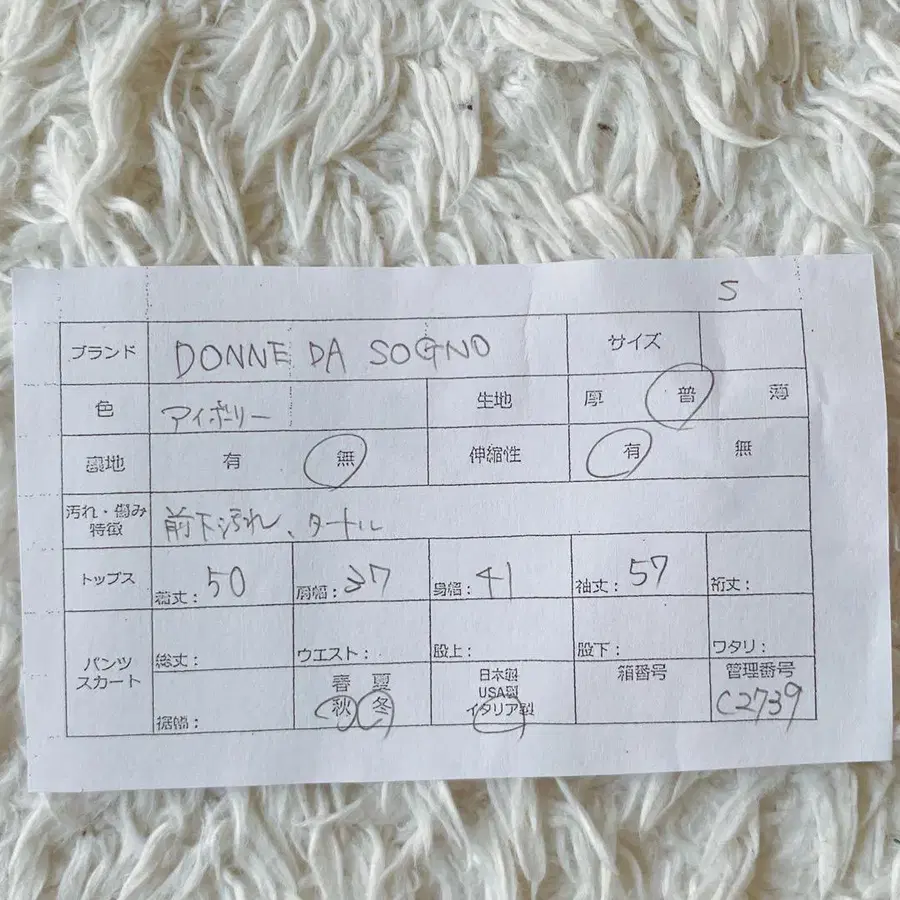 S
ブランド DONNE DA SOGNO サイズ
色 アイボリー 生地 厚 普 薄
裏地 有 無 伸縮性 有 無
汚れ・傷み
特徴 前下汚れ、タートル
トップス 着丈:50 肩幅:37 身幅:41 袖丈:57 裄丈:
パンツ
スカート 総丈: ウエスト: 股上: 股下: ワタリ:
裾幅: 春 夏
秋 冬 日本製
USA製
イタリア製 箱番号 管理番号
C2739